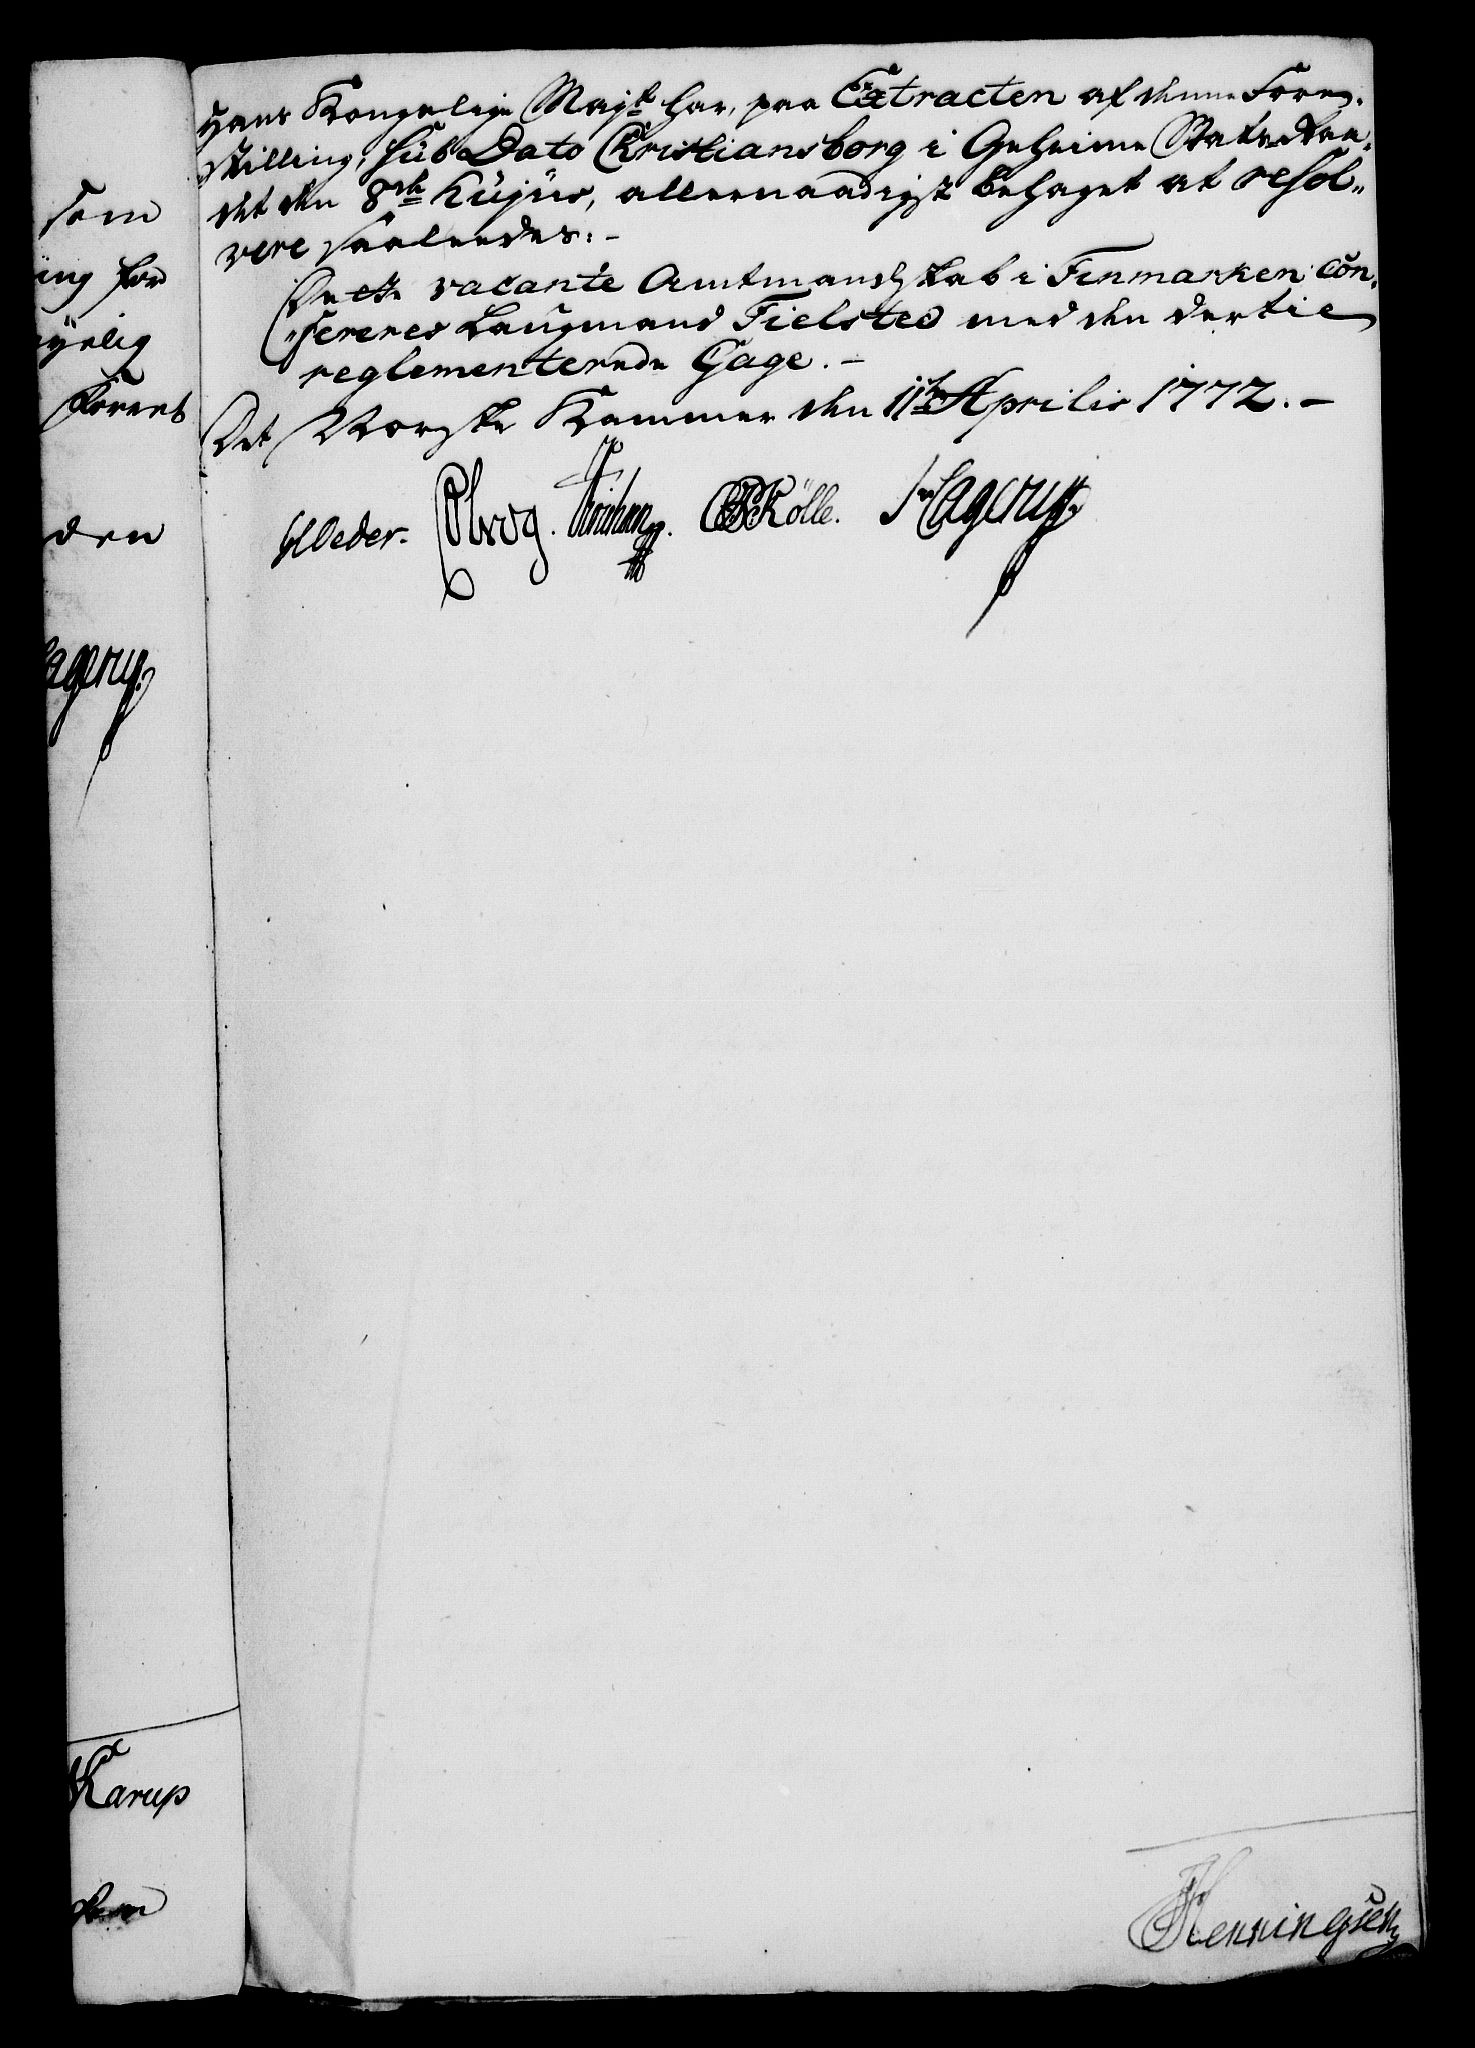 som
ing for
øyelig
Forret
den
agerup.
Karup
Hans Kongelige Mayt. har, paa Extracten af denne Fore,,
stilling, sub Dato Christiansborg i Geheime Stats Raa,,
det den 8de hujus, allernaadigst behaget at resol,,
vere saaledes: -
Dette vacante Amtmandskab i Finmarken con,,
fereres Laugmand Fielsted med den dertil
reglementerede Gage. -
Det Norske Kammer den 11te Aprilis 1772. -
GCOeder. Holmboe
Kølle. Hagerup.
Henningsen